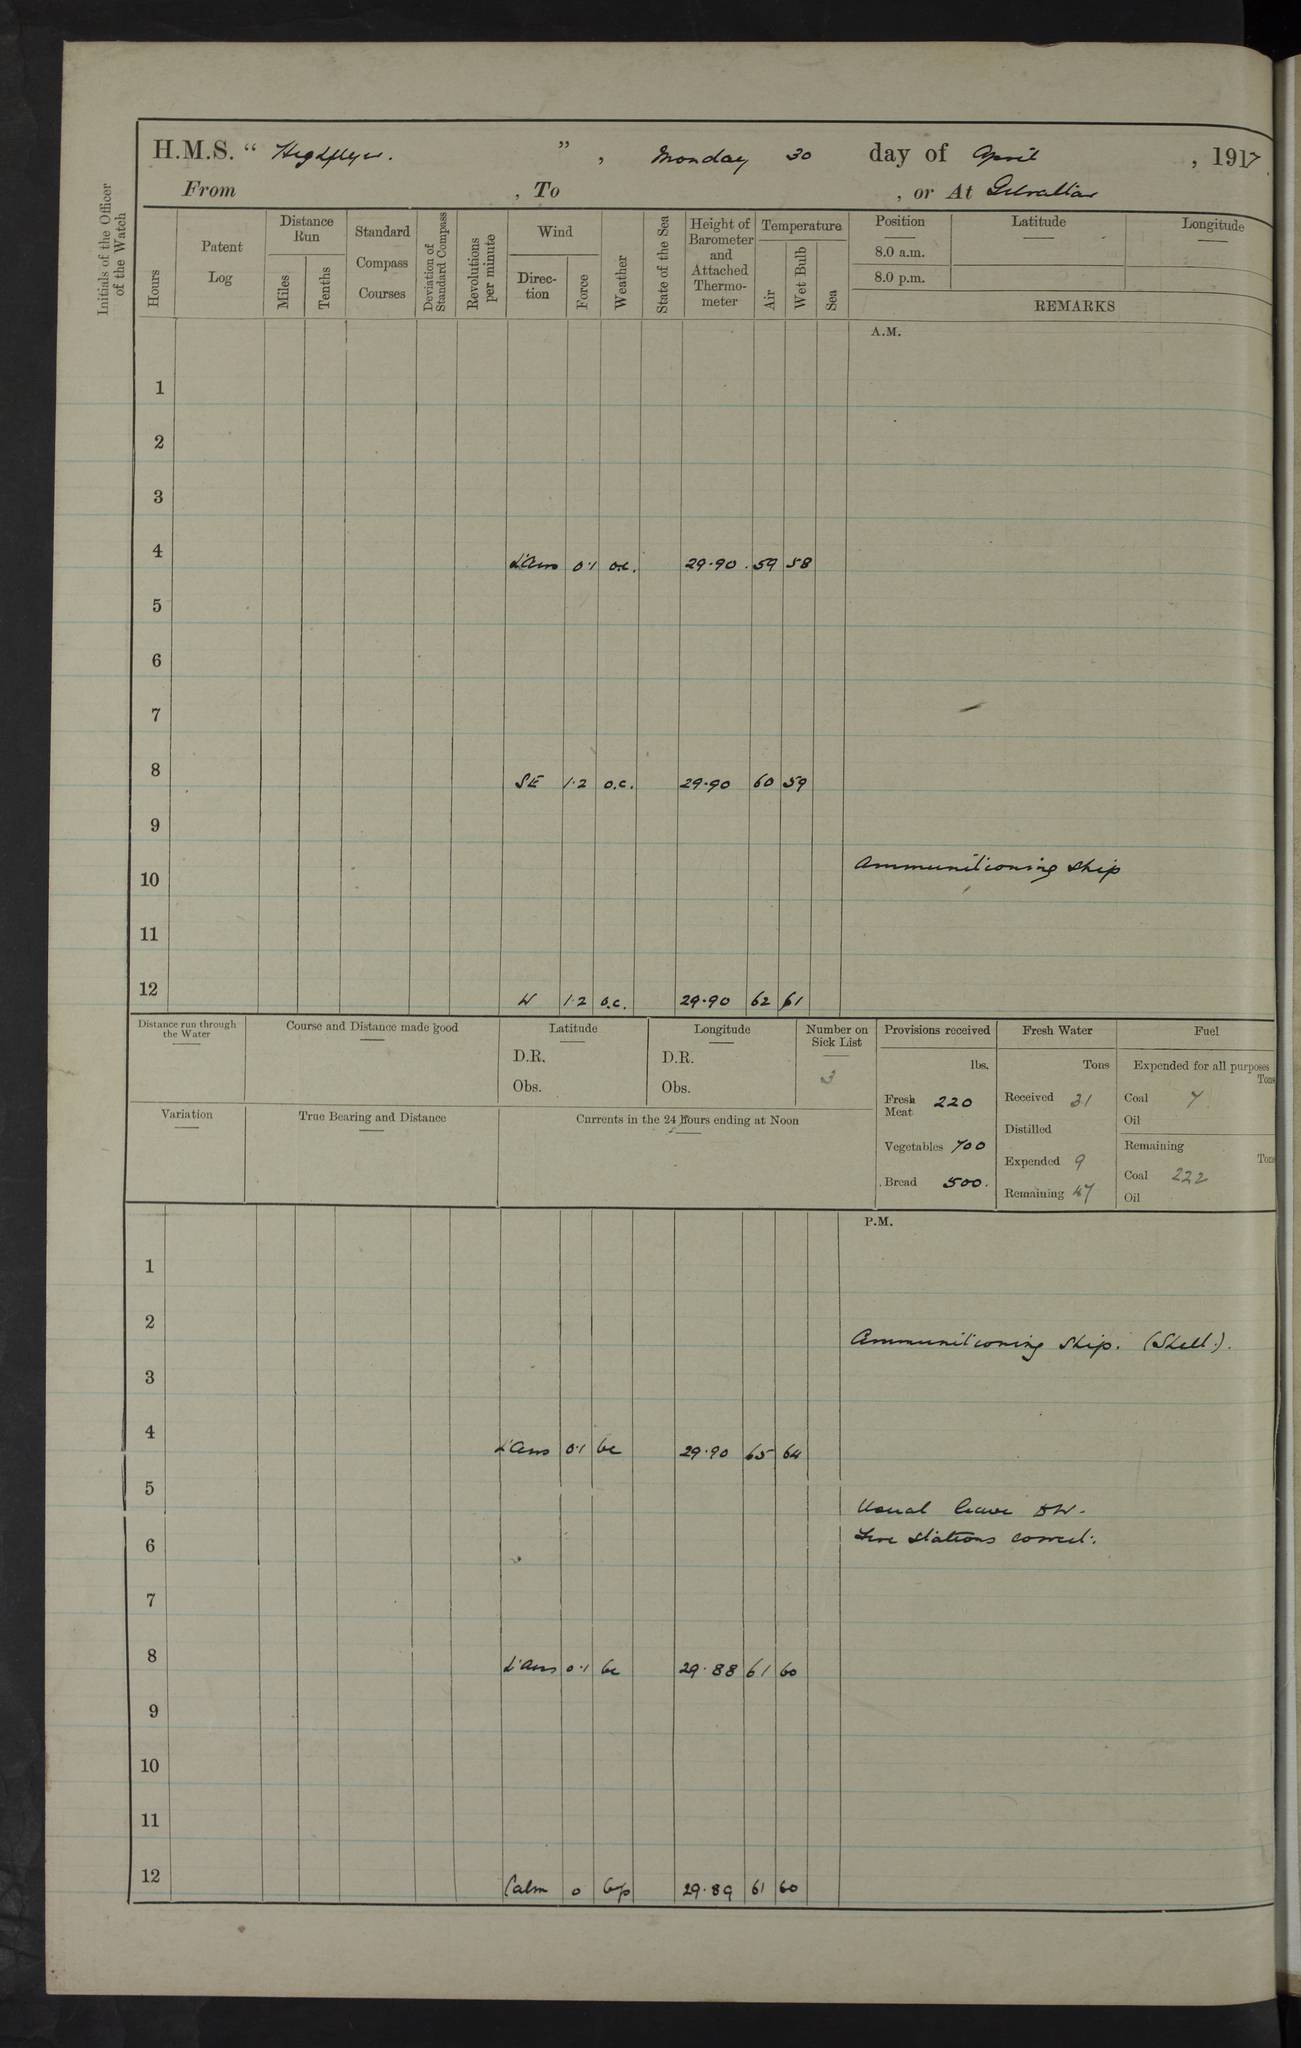 H.M.S. “ Highflyer. ” , Monday 30 day of April , 1917.
From , To , or At Gibraltar
Initials of the Officer of the Watch
Hours
Patent Log
Distance Run
Miles
Tenths
Standard Compass Courses
Deviation of Standard Compass
Revolutions per minute
Wind
Direc-tion
Force
Weather
State of the Sea
Height of Barometer and Attached Thermo-meter
Temperature
Air
Wet Bulb
Sea
Position
8.0 a.m.
8.0 p.m.
Latitude
Longitude
REMARKS
A.M.
1
2
3
4 L'airs 0.1 o.c. 29.90 59 58
5
6
7
8 SE 1.2 o.c. 29.90 60 59
9
10 Ammunitioning Ship
11
12 W 1.2 o.c. 29.90 62 61
Distance run through the Water
Course and Distance made good
Latitude
D.R.
Obs.
Longitude
D.R.
Obs.
Number on Sick List
3
Provisions received
lbs.
Fresh Meat 220
Vegetables 700
Bread 500.
Fresh Water
Tons
Received 31
Distilled
Expended 9
Remaining 47
Fuel
Expended for all purposes
Tons
Coal 7
Oil
Remaining
Tons
Coal 222
Oil
Variation
True Bearing and Distance
Currents in the 24 hours ending at Noon
P.M.
1
2 Ammunitioning Ship. (Shell.).
3
4 L'airs 0.1 bc 29.90 65 64
5 Usual leave
6 Fire stations correct.
7
8 L'airs 0.1 bc 29.88 61 60
9
10
11
12 Calm 0 bcp 29.89 61 60